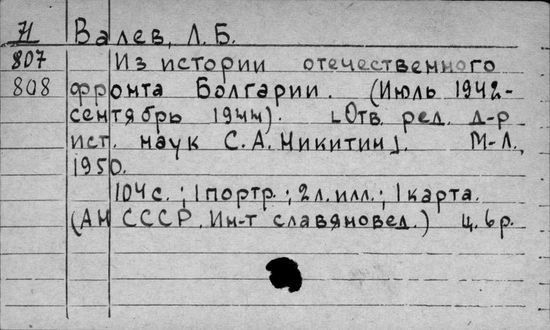 71 Валев, Л. Б.
807 Из истории отечественного
808 фронта Болгарии. (Июль 1942-
сентябрь 1944). [Отв. ред. д-р
ист. наук С. А. Никитин]. М-Л.,
1950.
104 с.; 1 портр.; 2 л. илл.; 1 карта.
(АН СССР. Ин-т славяновед.) ц. 6 р.